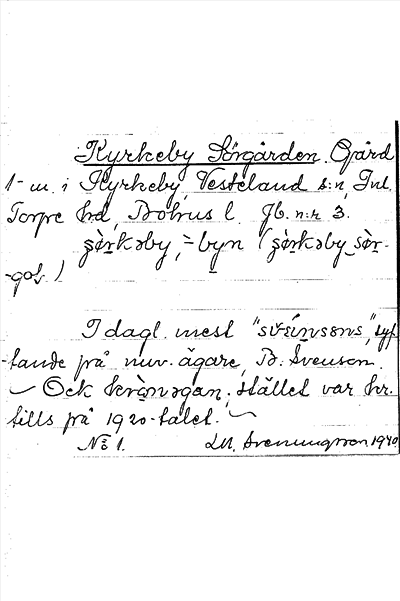 Kyrkeby Sörgården. Gård
1 m. i Kyrkeby, Västerland s:n, Inl.
Torpe hd, Bohus l. Jb. n:r 3.
-byn
I dagl. mest "svä́insəns", syf-
tande på nuv. ägare, B. Svenson.
Ock krò̤nəgan; stället var kr.
tills på 1920-talet.
No 1. LM. Svenungsson 1940